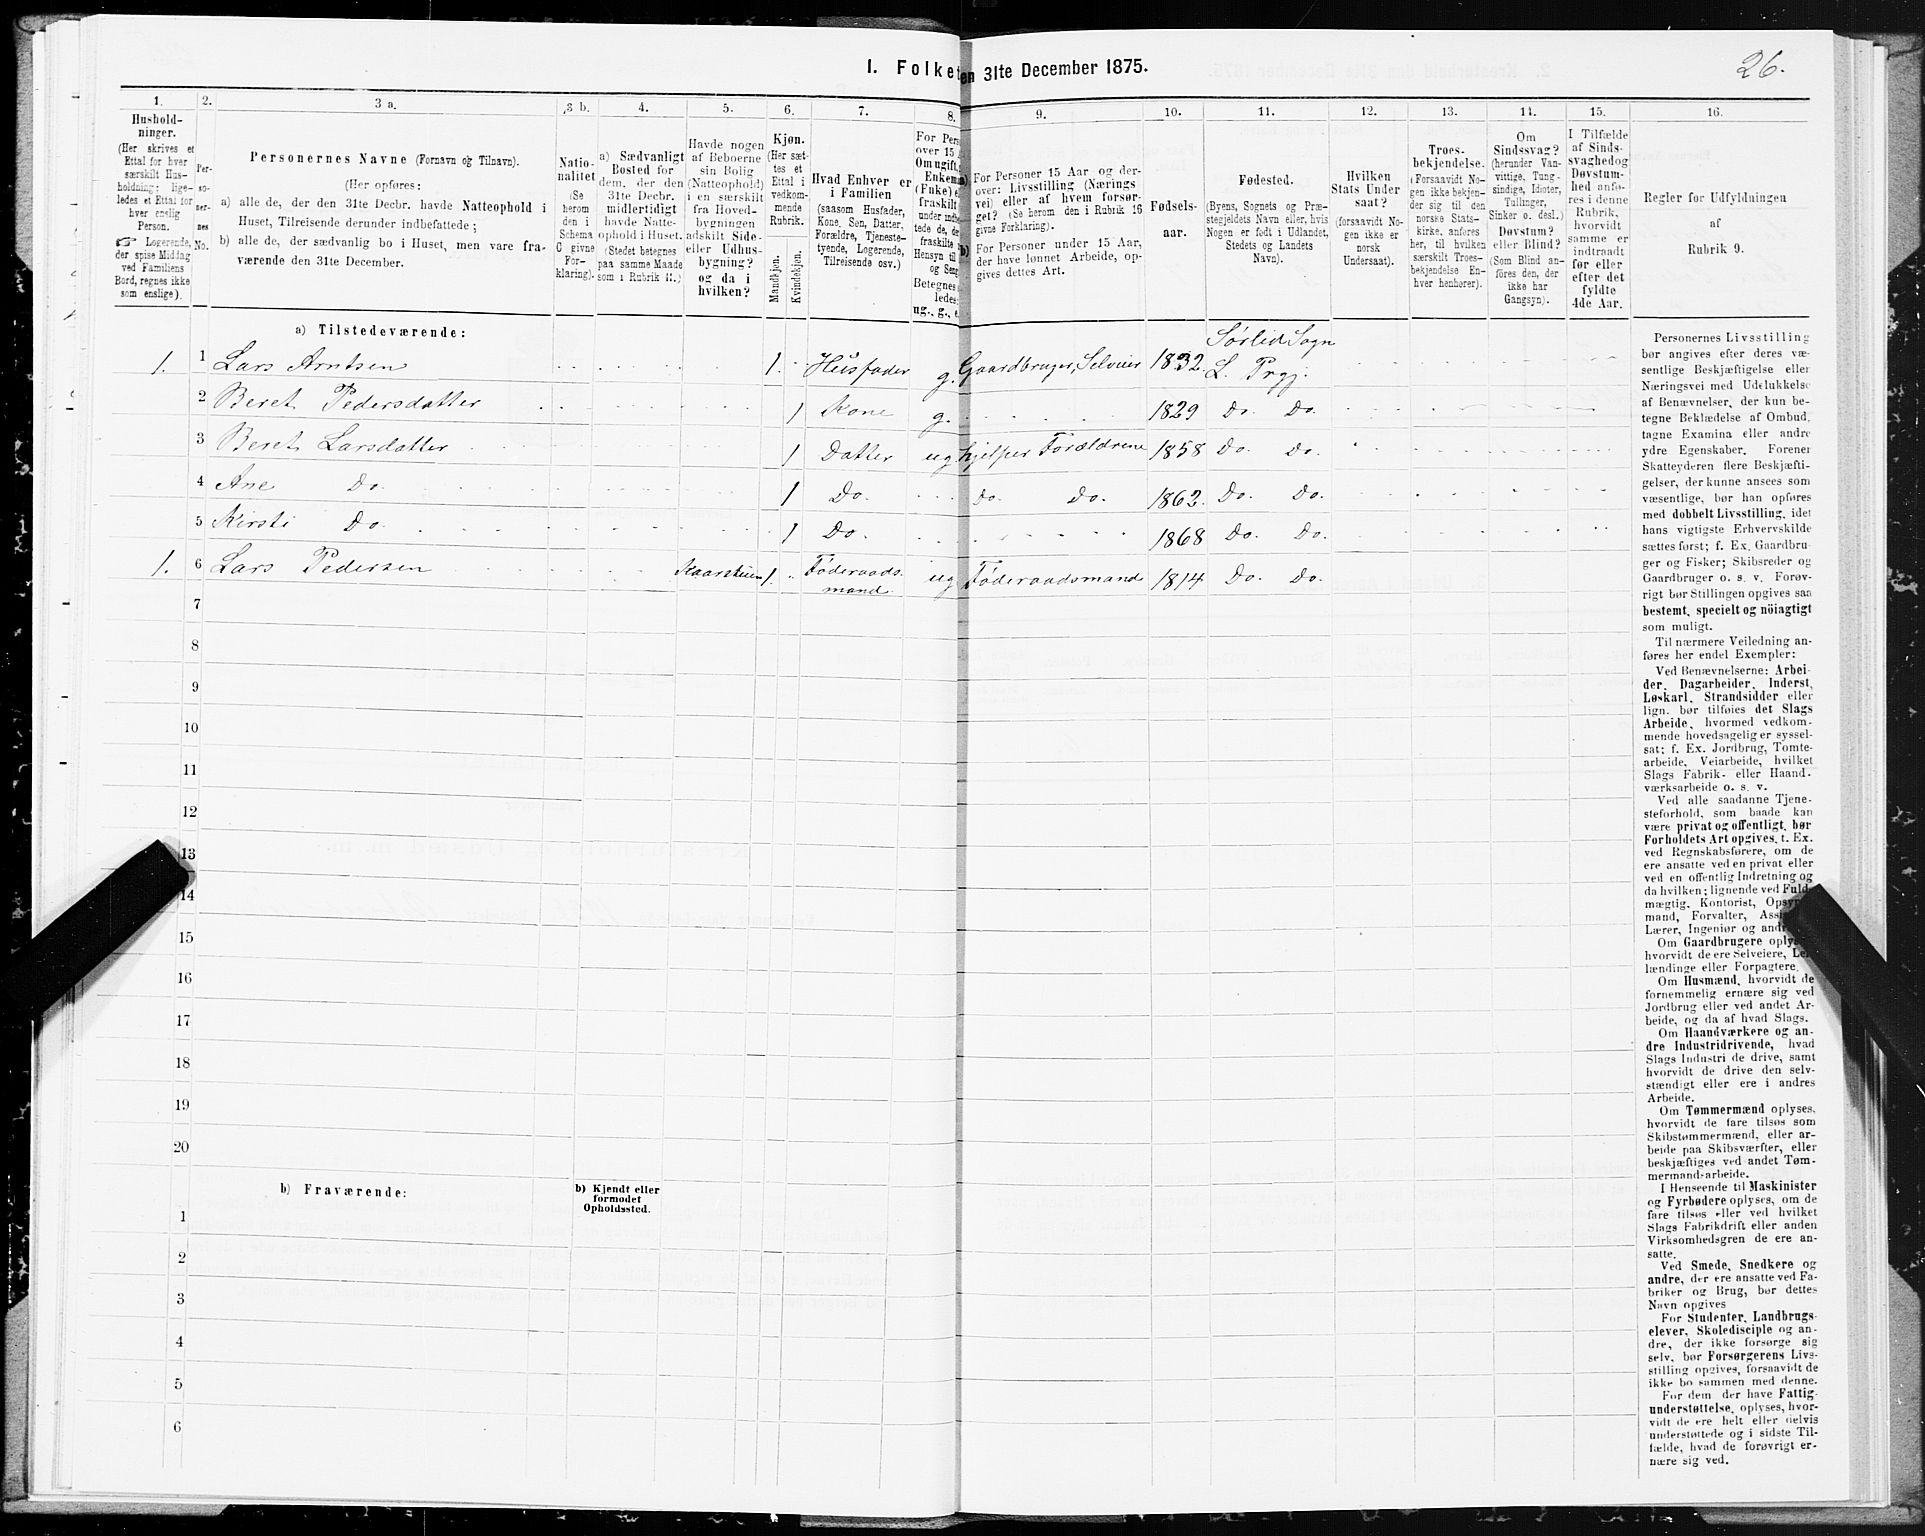 26.
I. Folke
en 31te December 1875.
1.
2.
3 a.
3 b.
4.
5.
6.
7.
8.
9.
10.
11.
12.
13.
14.
15.
16.
Hushold-
ninger.
(Her skrives et
Ettal for hver
særskilt Hus-
holdning; lige-
ledes et Ettal for
hver enslig
Person.
☞ Logerende,
der spise Middag
ved Familiens
Bord, regnes ikke
som enslige).
Per-
so-
ner-
nes
No.
Personernes Navne (Fornavn og Tilnavn).
(Her opføres:
a) alle de, der den 31te Decbr. havde Natteophold i
Huset, Tilreisende derunder indbefattede;
b) alle de, der sædvanlig bo i Huset, men vare fra-
værende den 31te December.
Natio-
nalitet
(Se
herom
den i
Schema
C givne
For-
klaring).
a) Sædvanligt
Bosted for
dem, der den
31te Decbr.
midlertidigt
havde Natte-
ophold i Huset.
(Stedet betegnes
paa samme Maade
som i Rubrik 11.)
Havde nogen
af Beboerne
sin Bolig
(Natteophold)
i en særskilt
fra Hoved-
bygningen
adskilt Side-
eller Udhus-
bygning?
og da i
hvilken?
Kjøn.
(Her sæt-
tes et
Ettal i
vedkom-
mende
Rubrik.
Mandkjøn.
Kvindekjøn.
Hvad Enhver er
i Familien
(saasom Husfader,
Kone, Søn, Datter,
Forældre, Tjeneste-
tyende, Logerende,
Tilreisende osv.)
For Pers
over 15 A
Om ugift,
Enkema
(Enke) e
fraskilt
under indb
tede de, de
fraskilte
Hensyn til
og Seng
Betegnes
ledes:
ug., g., e
a) For Personer 15 Aar og der-
over: Livsstilling (Nærings
vei) eller af hvem forsør-
get? (Se herom den i Rubrik 16
givne Forklaring).
b) For Personer under 15 Aar,
der have lønnet Arbeide, op-
gives dettes Art.
Fødsels-
aar.
Fødested.
(Byens, Sognets og Præ-
stegjeldets Navn eller, hvis
Nogen er født i Udlandet,
Stedets og Landets
Navn).
Hvilken
Stats Under
saat?
(forsaavidt No-
gen ikke er
norsk
Undersaat).
Troes-
bekjendelse.
(Forsaavidt No-
gen ikke bekjen-
der sig til den
norske Stats-
kirke, anføres
her, til hvilken
særskilt Troes-
bekjendelse En-
hver henhører).
Om
Sindssvag?
(herunder Van-
vittige, Tung-
sindige, Idioter,
Tullinger,
Sinker o. desl.)
Døvstum?
eller Blind?
(Som Blind an-
føres den, der
ikke har
Gangsyn).
I Tilfælde
af Sinds-
svaghed og
Døvstum-
hed anfø-
res i denne
Rubrik,
hvorvidt
samme er
indtraadt
før eller
efter det
fyldte
4de Aar.
Regler for Udfyldningen
af
Rubrik 9.
a) Tilstedeværende:
1. 1 Lars Arntsen 1. Husfader g. Gaardbruger, Selveier 1832. Sørlid Sogn L. Prgj.
2 Beret Pedersdatter 1 Kone g. 1829 Do. Do.
3 Beret Larsdatter 1 Datter ug hjelper Forældrene 1858 Do. Do.
4 Ane Do. 1 Do. Do. Do. 1862. Do. Do.
5 Kirsti Do. 1 Do. 1868 Do. Do.
1. 6 Lars Pedersen 1. Føderaads- mand. ug Føderaadsmand 1814 Do. Do.
7
8
9
10
11
12
13
14
15
16
17
18
19
20
b) Fraværende:
b) Kjendt eller
formodet
Opholdssted.
1
2
3
4
5
6
Personernes Livsstilling
bør angives efter deres væ-
sentlige Beskjæftigelse eller
Næringsvei med Udelukkelse
af Benævnelser, der kun be-
tegne Beklædelse af Ombud,
tagne Examina eller andre
ydre Egenskaber. Forener
Skatteyderen flere Beskjæfti-
gelser, der kunne ansees som
væsentlige, bør han opføres
med dobbelt Livsstilling, idet
hans vigtigste Erhvervskilde
sættes først; f. Ex. Gaardbru-
ger og Fisker; Skibsreder og
Gaardbruger o. s. v. Forøv-
rigt bør Stillingen opgives saa
bestemt, specielt og nöiagtigt
som muligt.
Til nærmere Veiledning an-
føres her endel Exempler:
Ved Benævnelserne: Arbei-
der, Dagarbeider, Inderst,
Løskarl, Strandsidder eller
lign. bør tilføies det Slags
Arbeide, hvormed vedkom-
mende hovedsagelig er syssel-
sat; f. Ex. Jordbrug, Tomte-
arbeide, Veiarbeide, hvilket
Slags Fabrik- eller Haand-
værksarbeide o. s. v.
Ved alle saadanne Tjene-
steforhold, som baade kan
være privat og offentligt, bør
Forholdets Art opgives, t. Ex.
ved Regnskabsførere, om de
ere ansatte ved en privat eller
ved en offentlig Indretning og
da hvilken; lignende ved Fuld-
mægtig, Kontorist, Opsyns-
mand, Forvalter, Assi
Lærer, Ingeniør og and
Om Gaardbrugere oply
hvorvidt de ere Selveiere, Lei
lændinge eller Forpagtere.
Om Husmænd, hvorvidt de
fornemmelig ernære sig ved
Jordbrug eller ved andet Ar-
beide, og da af hvad Slags.
Om Haandværkere og an-
dre Industridrivende, hvad
Slags Industri de drive, samt
hvorvidt de drive den selv-
stændigt eller ere i andres
Arbeide.
Om Tømmermænd oplyses,
hvorvidt de fare tilsøs som
Skibstømmermænd, eller ar-
beide paa Skibsværfter, eller
beskjæftiges ved andet Tøm-
mermandsarbeide.
I Henseende til Maskinister
og Fyrbødere oplyses, om de
fare tilsøs eller ved hvilket
Slags Fabrikdrift eller anden
Virksomhedsgren de ere an-
satte.
Ved Smede, Snedkere og
andre, der ere ansatte ved Fa-
briker og Brug, bør dettes
Navn opgives
For Studenter, Landbrugs-
elever, Skoledisciple og an-
dre, der ikke forsørge sig
selv, bør Forsørgerens Livs-
stilling opgives, forsaavidt de
ikke bo sammen med denne.
For dem der have Fattig-
understøttelse, oplyses, hvor-
vidt de ere helt eller delvis
understøttede og i sidste Til-
fælde, hvad de forøvrigt er-
nære sig ved.